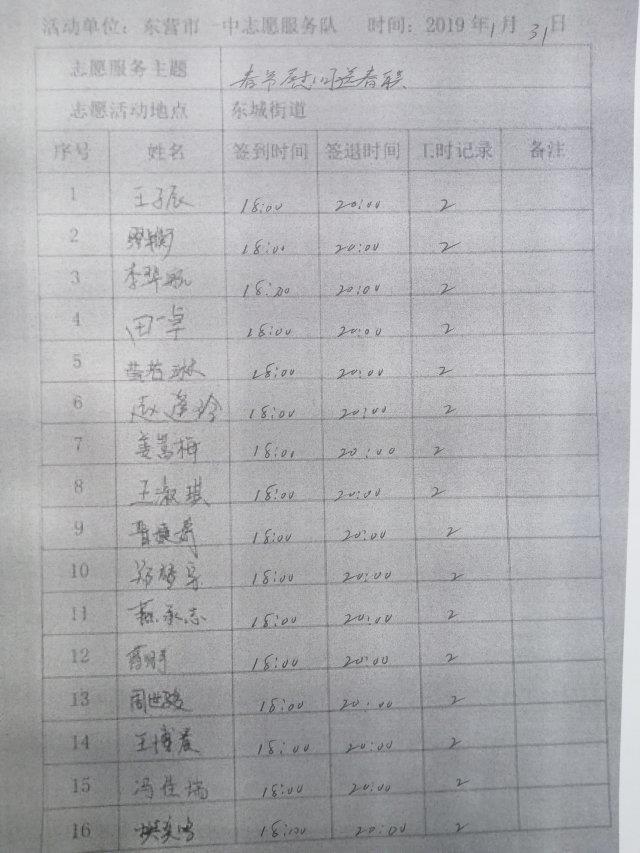 活动单位：东营市一中志愿服务队 时间：2019年1月31日
志愿服务主题 春节慰问送春联
志愿活动地点 东城街道
序号 姓名 签到时间 签退时间 工时记录 备注
1 王子辰 18:00 20:00 2
2 18:00 20:00 2
3 李翠 18:00 20:00 2
4 田一卓 18:00 20:00 2
5 若琳 18:00 20:00 2
6 赵逢玲 18:00 20:00 2
7 姜嵩梅 18:00 20:00 2
8 王淑琪 18:00 20:00 2
9 18:00 20:00 2
10 18:00 20:00 2
11 承志 18:00 20:00 2
12 18:00 20:00 2
13 周世骏 18:00 20:00 2
14 王博 18:00 20:00 2
15 冯佳瑞 18:00 20:00 2
16 18:00 20:00 2